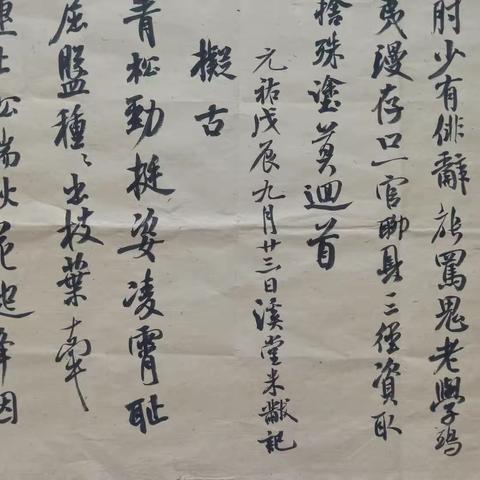 时少有俳辭能罵鬼老學鴟
夷漫存口一官聊具三徑資取
捨殊塗莫迴首
元祐戊辰九月廿三日溪堂米黻記
擬古
青松勁挺姿凌霄恥
屈盤種〻出枝葉牽
連上松端秋花起絳